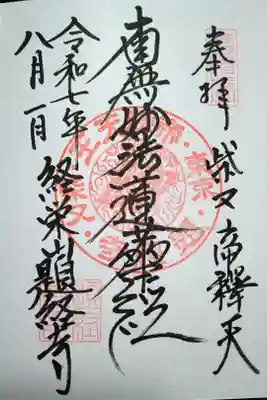 奉拝 柴又帝釋天
南無妙法蓮華経
令和七年
八月一日
経栄山題経寺